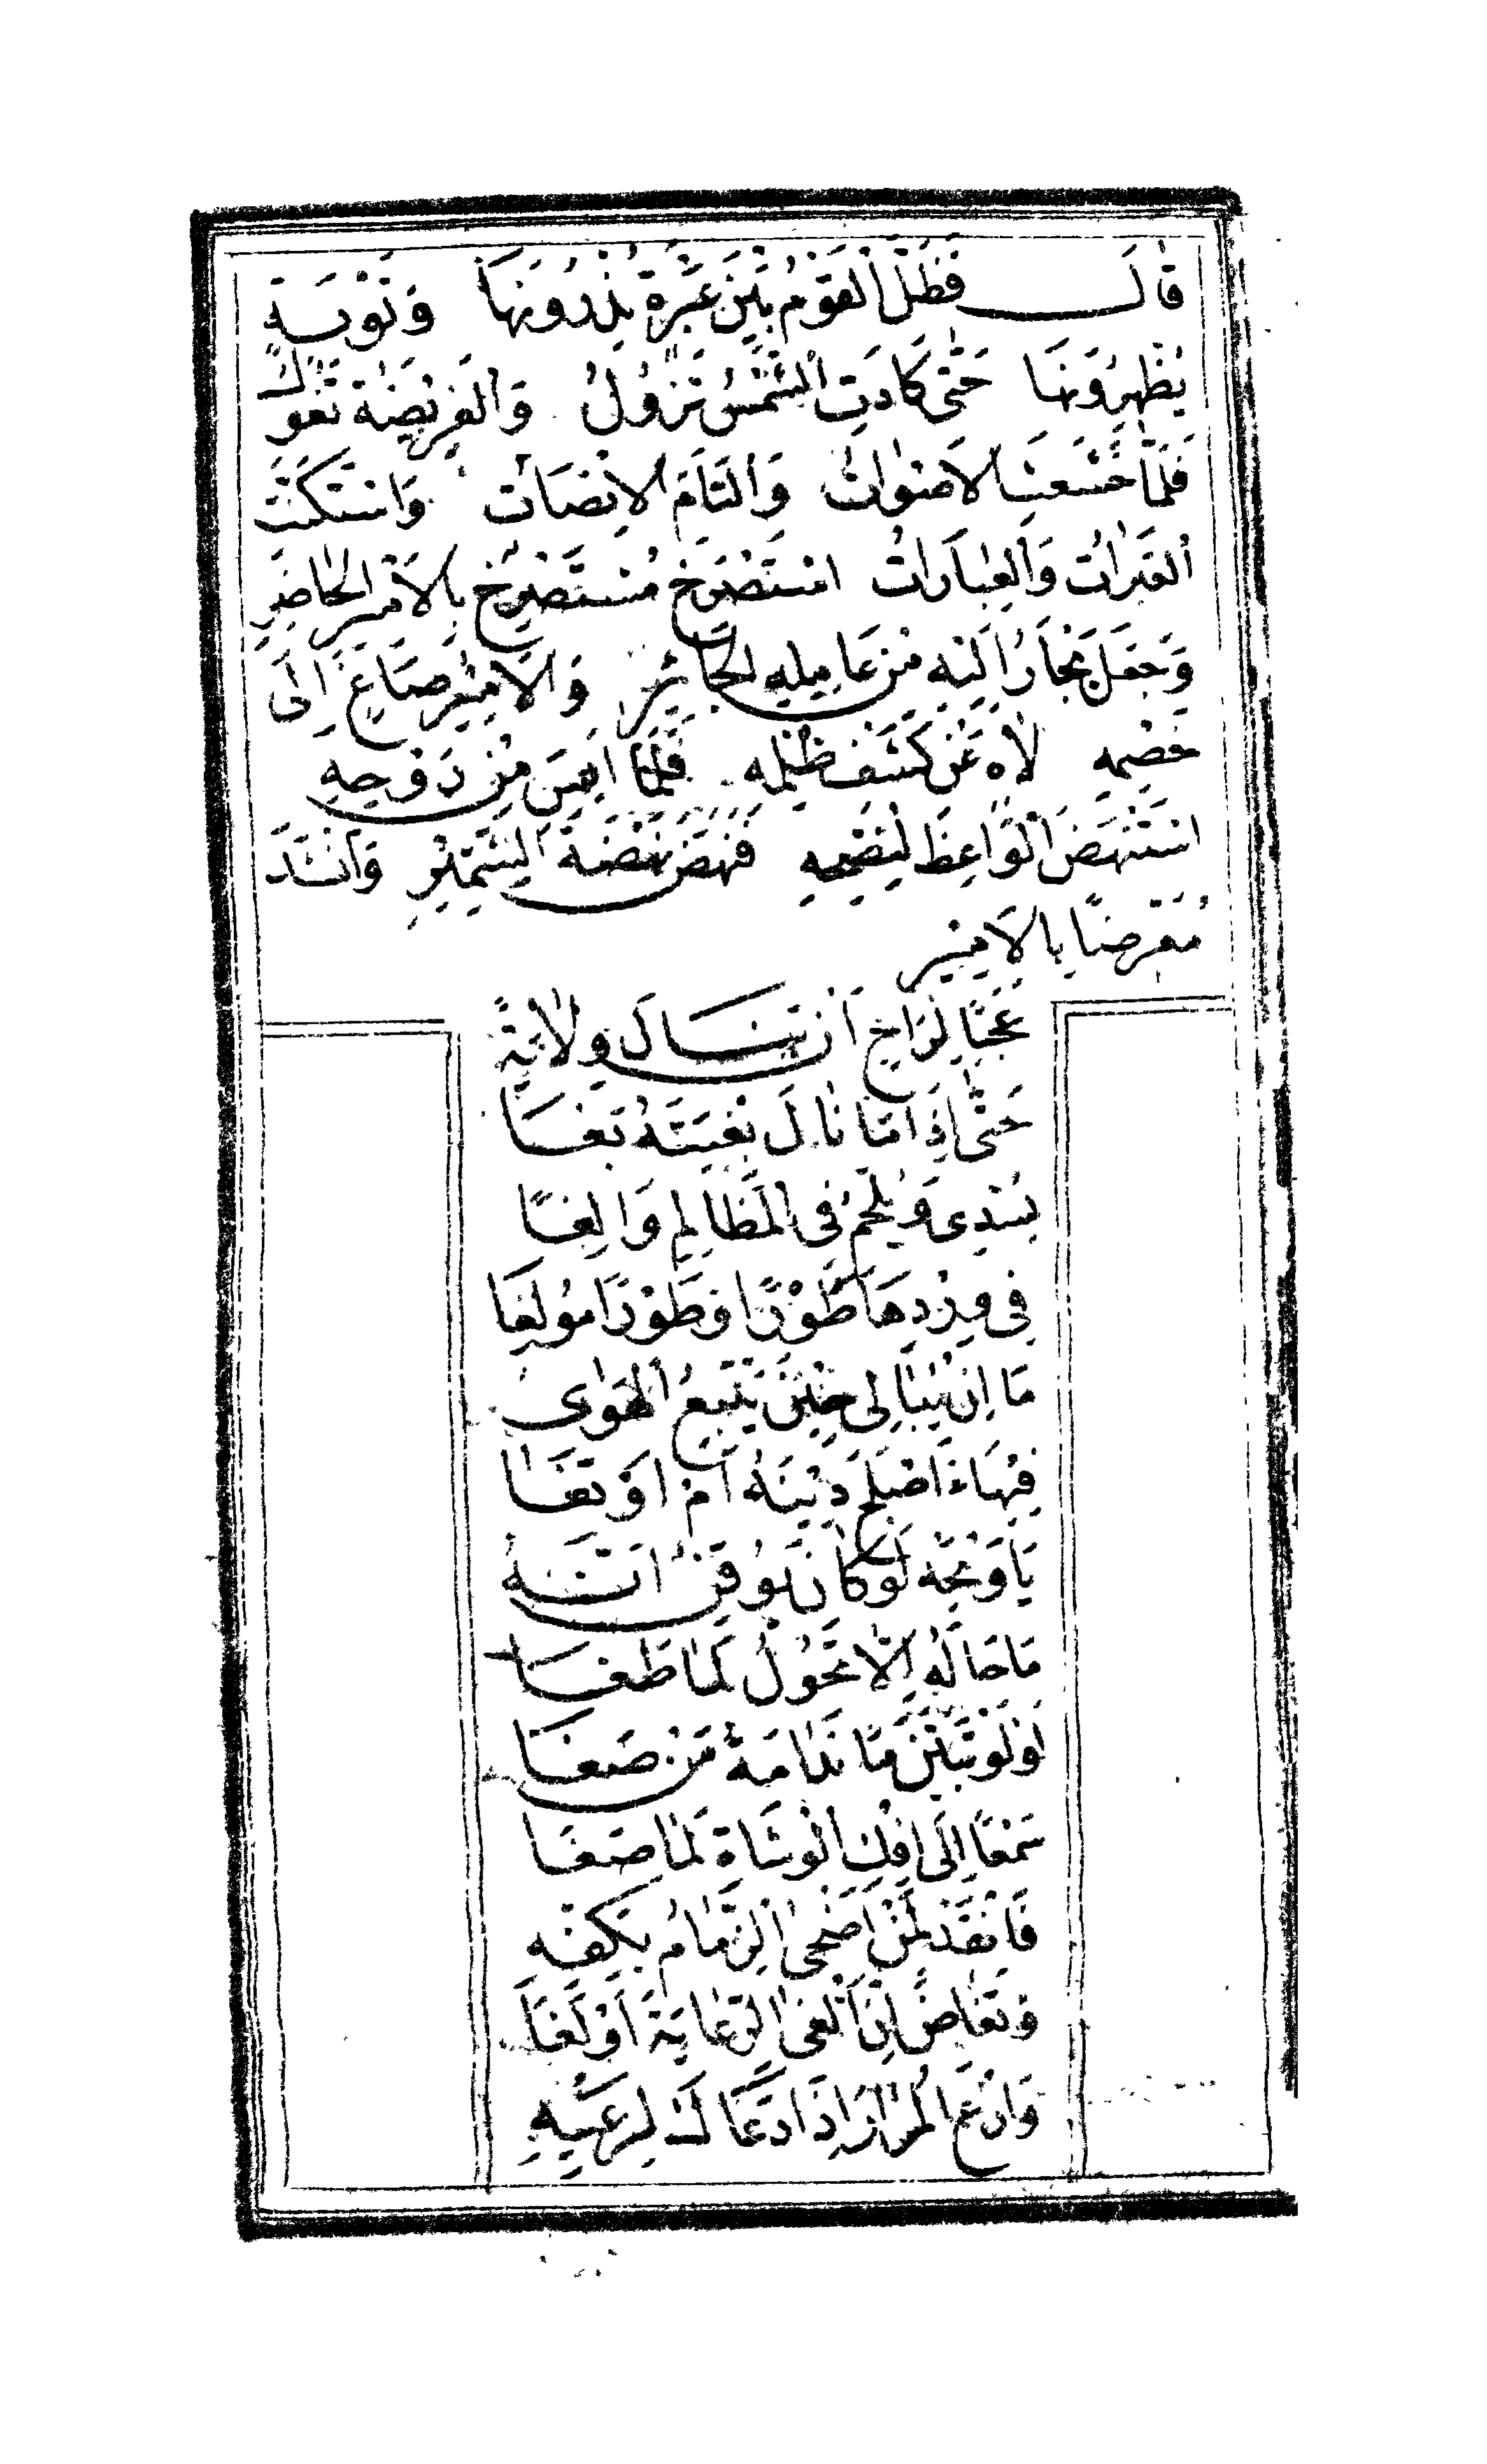 قَالَ فَظَلَّ الْقَوْمُ بَيْنَ عَبْرَةٍ يُذْرُونَهَا وَتَوْبَةٍ
يُظْهِرُونَهَا حَتَّى كَادَتِ الشَّمْسُ تَزُولُ وَالْفَرِيضَةُ تَعُولُ
فَلَمَّا خَشَعَتِ الْاَصْوَاتُ وَالْتَأَمَ الْاِنْصَاتُ وَاسْتَكَنَّتِ
الْعَبَرَاتُ وَالْعِبَارَاتُ اسْتَصْرَخَ مُسْتَصْرِخٌ بِالْاَمِيرِ الْحَاضِرِ
وَجَعَلَ يَجْأَرُ اِلَيْهِ مِنْ عَامِلِهِ الْجَائِرِ وَالْاَمِيرُ صَاغٍ اِلَى
خَصْمِهِ لَاهٍ عَنْ كَشْفِ ظُلْمِهِ فَلَمَّا اَيِسَ مِنْ رَوْحِهِ
اسْتَنْهَضَ الْوَاعِظَ لِنُصْحِهِ فَنَهَضَ نَهْضَةَ الشِّمِّيرِ وَاَنْشَدَ
مُعَرِّضًا بِالْاَمِيرِ
عَجَبًا لِرَاجٍ اَنْ يَنَالَ وِلَايَةً
حَتَّى اِذَا مَا نَالَ بُغْيَتَهُ بَغَا
يُسْدِى وَيُلْحِمُ فِى الْمَظَالِمِ وَالِغًا
فِى وِرْدِهَا طَوْرًا وَطَوْرًا مُولِغَا
مَا اِنْ يُبَالِى حِينَ يَتَّبِعُ الْهَوٰى
فِيهَا ءَاَصْلَحَ دِينَهُ اَمْ اَوْتَغَا
يَا وَيْحَهُ لَوْ كَانَ يُوقِنُ اَنَّهُ
مَا حَالَةٌ اِلَّا تَحُولُ لَمَا طَغَا
اَوْ لَوْ تَبَيَّنَ مَا نَدَامَةُ مَنْ صَغَا
سَمْعًا اِلَى اِفْكِ الْوُشَاةِ لَمَا صَغَا
فَانْقَدْ لِمَنْ اَضْحَى الزِّمَامُ بِكَفِّهِ
وَتَغَاضَ اِنْ اَلْغَى الرِّعَايَةَ اَوْ لَغَا
وَارْعَ الْمُرَارَ اِذَا دَعَاكَ لِرَعْيِهِ